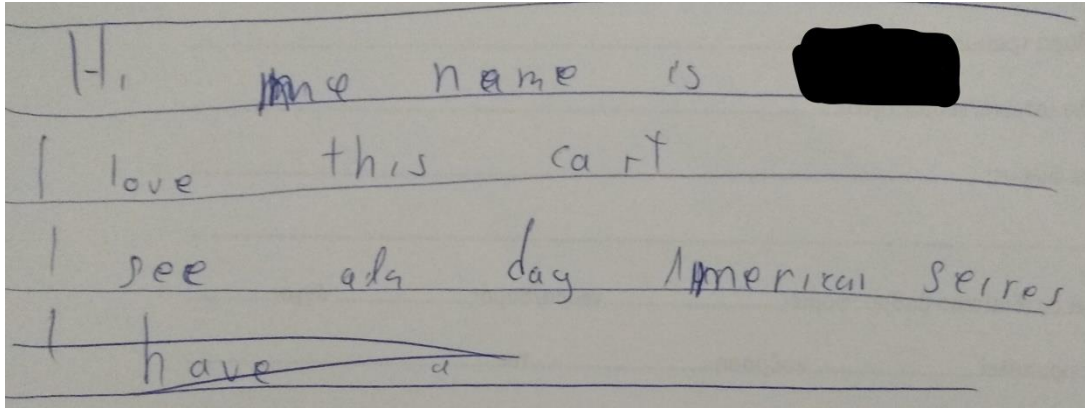 Hi, me name is
I love this cart
I see ada day Americal serres
I have a